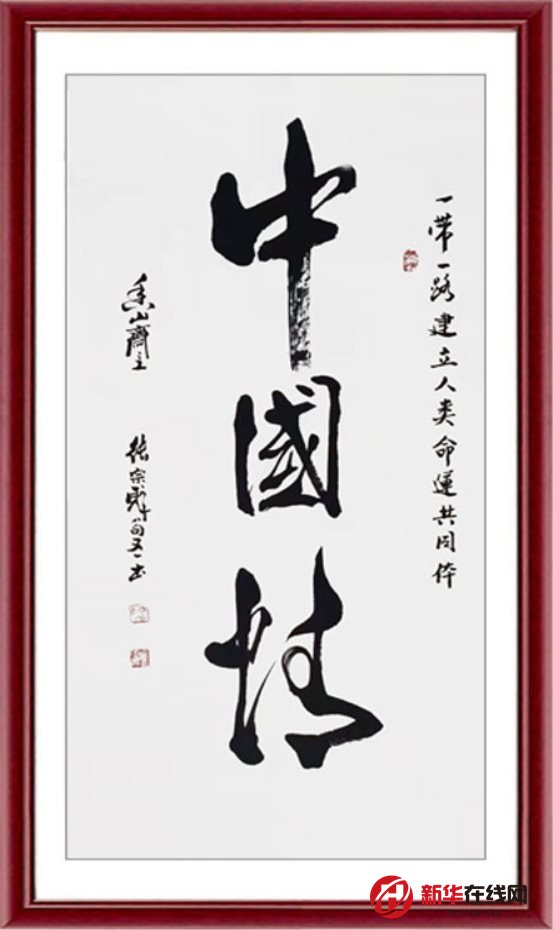 一带一路建立人类命運共同体
中國情
香山齋主
张宗
书
新华在线网